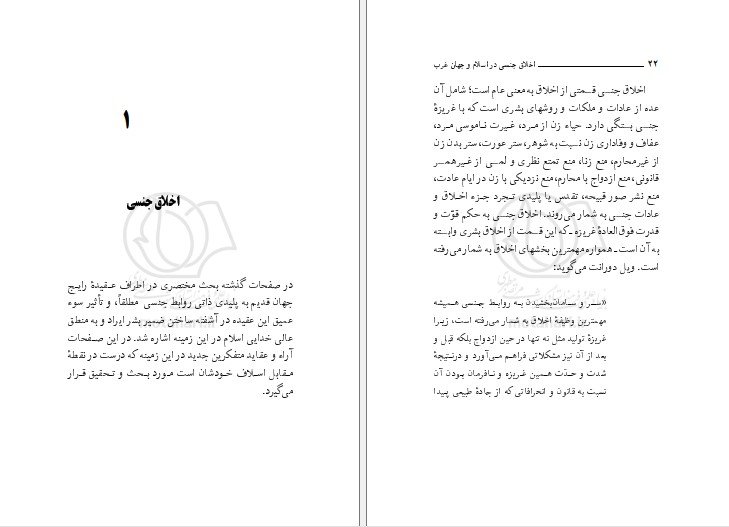 ۱
اخلاق جنسی
در صفحات گذشته بحث مختصری در اطراف عقیدهٔ رایج
جهان قدیم به پلیدی ذاتی روابط جنسی مطلقاً، و تأثیر سوء
عمیق این عقیده در آشفته ساختن ضمیر بشر ایراد و به منطق
عالی خدایی اسلام در این زمینه اشاره شد. در این صفحات
آراء و عقاید متفکرین جدید در این زمینه که درست در نقطهٔ
مقابل اسلاف خودشان است مورد بحث و تحقیق قرار
می‌گیرد.
۲۲ اخلاق جنسی در اسلام و جهان غرب
اخلاق جنسی قسمتی از اخلاق به معنی عام است؛ شامل آن
عده از عادات و ملکات و روشهای بشری است که با غریزهٔ
جنسی بستگی دارد. حیاء زن از مرد، غیرت ناموسی مرد،
عفاف و وفاداری زن نسبت به شوهر، ستر عورت، ستر بدن زن
از غیرمحارم، منع زنا، منع تمتع نظری و لمسی از غیرهمسر
قانونی، منع ازدواج با محارم، منع نزدیکی با زن در ایام عادت،
منع نشر صور قبیحه، تقدس یا پلیدی تجرد جزء اخلاق و
عادات جنسی به شمار می‌روند. اخلاق جنسی به حکم قوّت و
قدرت فوق‌العادهٔ غریزه ـ که این قسمت از اخلاق بشری وابسته
به آن است ـ همواره مهمترین بخشهای اخلاق به شمار می‌رفته
است. ویل دورانت می‌گوید:
«سر و سامان‌بخشیدن به روابط جنسی همیشه
مهمترین وظیفهٔ اخلاق به شمار می‌رفته است، زیرا
غریزهٔ تولید مثل نه تنها در حین ازدواج بلکه قبل و
بعد از آن نیز مشکلاتی فراهم می‌آورد و درنتیجهٔ
شدت و حدّت همین غریزه و نافرمان بودن آن
نسبت به قانون و انحرافاتی که از جادهٔ طبیعی پیدا